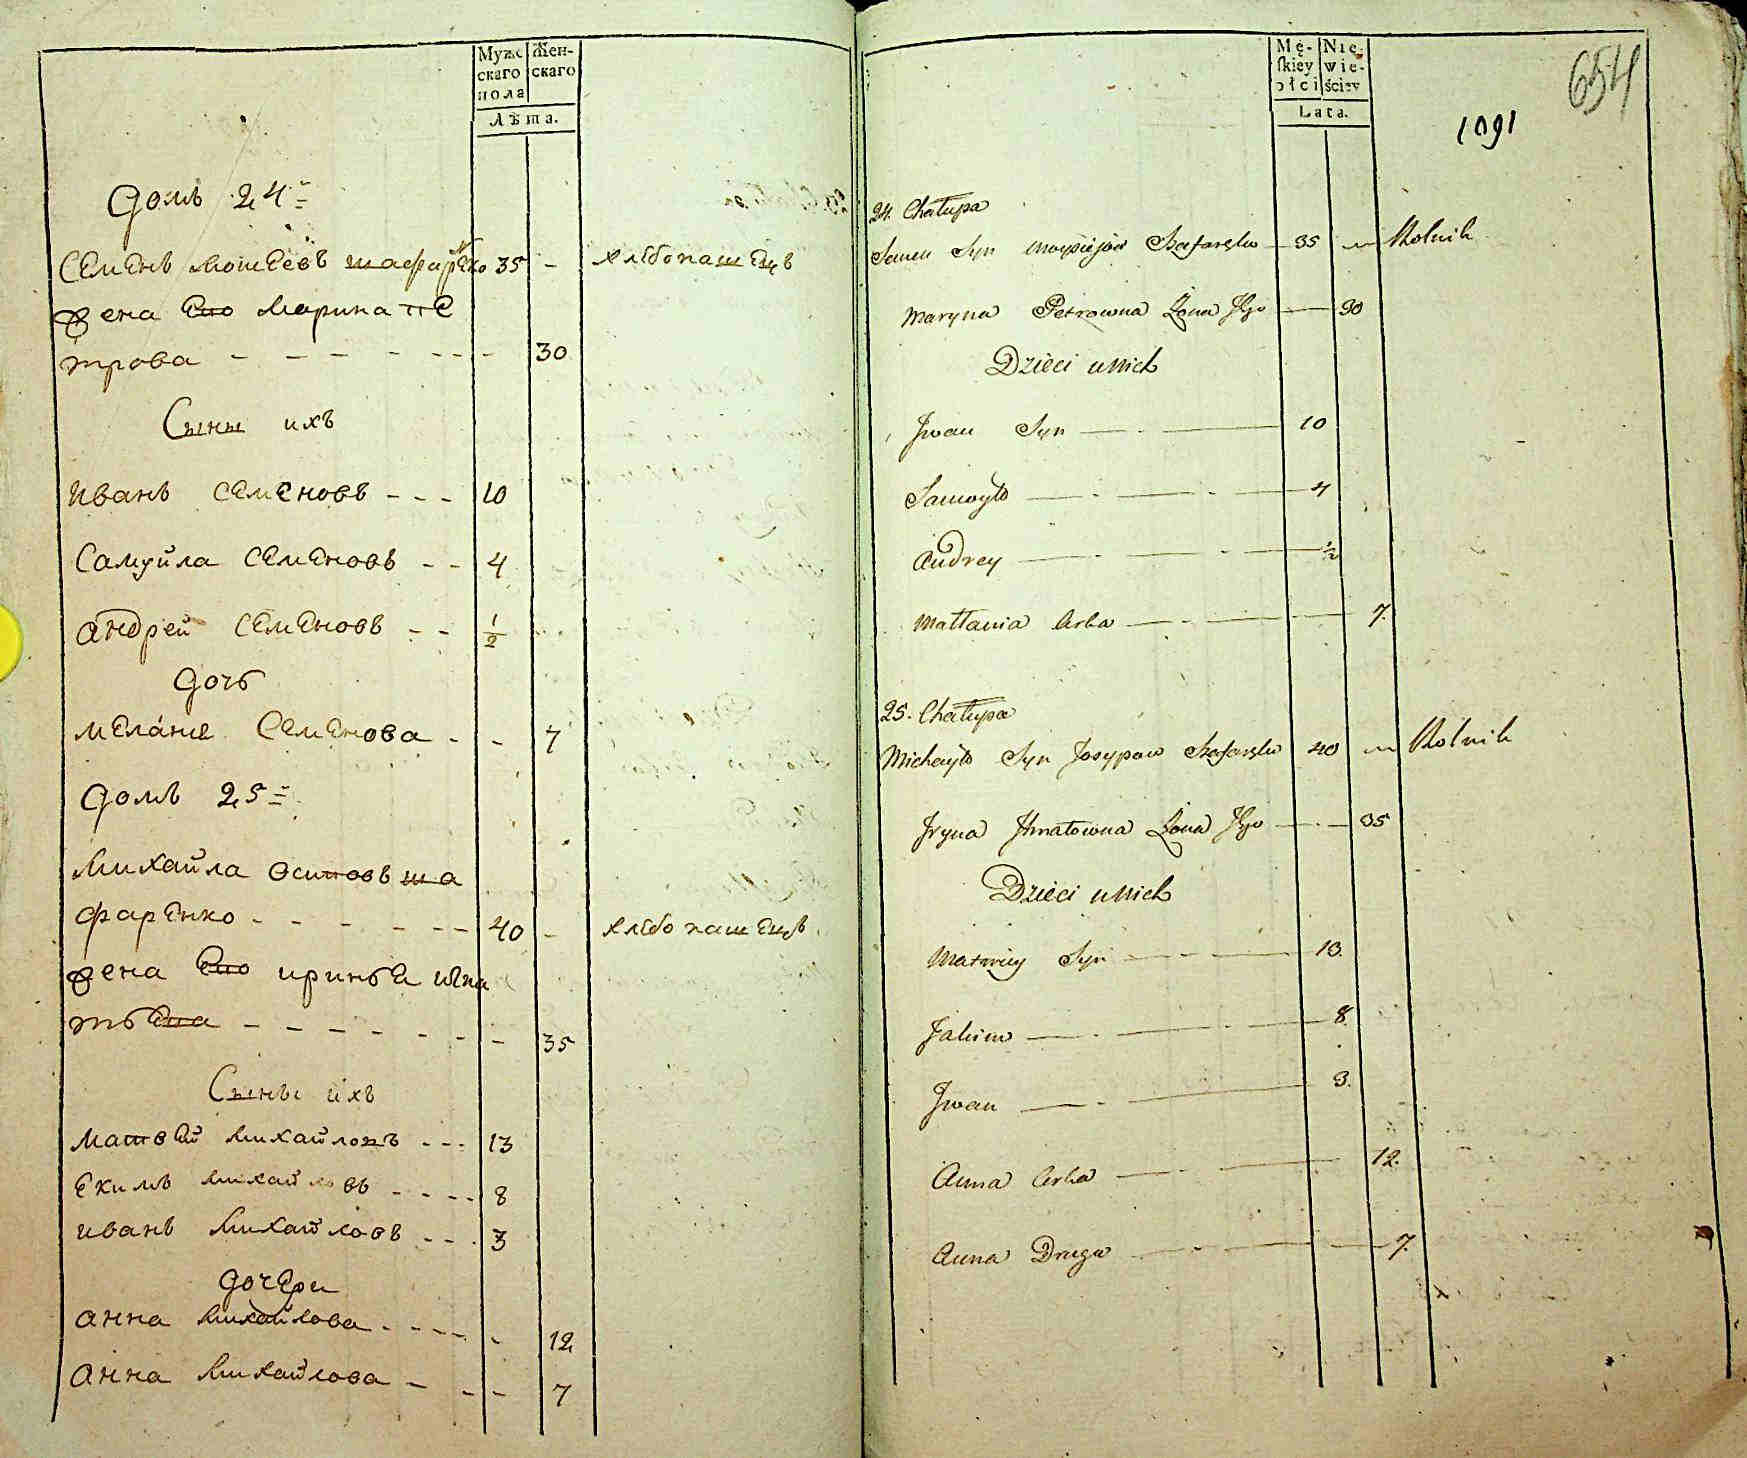 Муже Жен-
скаго скаго
пола
Лѣта.
Домъ 24=
Семенъ Мошеевъ шафаренко 35 - хлѣбопашецъ
жена Его Марина Пе
трова - - - - - - - 30
Сыны ихъ
Иванъ Семеновъ - - - 10
Самуйла Семеновъ - - 4
Андрей Семеновъ - - 1/2
Дочь
Мелание Семенова - - 7
Домъ 25=
Михайла Осиповъ ша
фаренко - - - - - - - 40 - хлѣбопашецъ
жена Его иринѣе игна
тьева - - - - - - - 35
Сыны ихъ
Матвей Михайловъ - - - 13
Екимъ Михайловъ - - - - 8
Иванъ Михайловъ - - - 3
Дочери
Анна Михайлова - - - - - 12
Анна Михайлова - - - 7
Mę- Nie-
ſkiey wie-
płci ściey
Lata.
654
1091
24. Chałupa
Semen Syn Moysiejow Szafaręko 35 Rolnik
Maryna Petrowna Żona Jgo 30
Dzieci u Nich
Jwan Syn 10
Samoyło 4
Andrey 1/2
Małania Crka 7.
25. Chałupa
Michayło Syn Josypow Szafaręko 40 Rolnik
Jryna Jhnatowna Żona Jgo 35
Dzieci u Nich
Matwiey Syn 13.
Jakim 8.
Jwan 3.
Anna Crka 12.
Anna Druga 7.